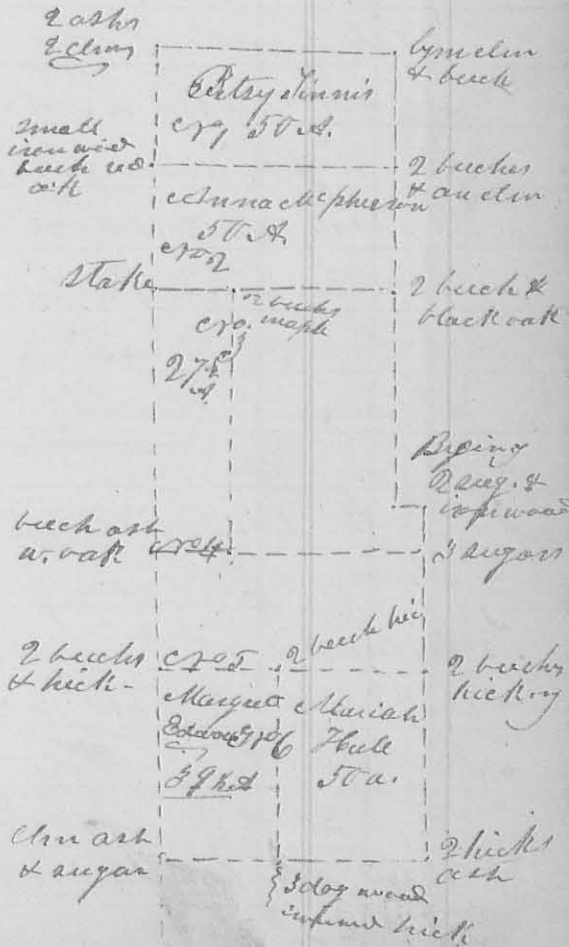 2 ashs
2 elms
Lynn elm
& beech
Betsy Tinnis
No 1 50 A.
small
iron wood
beech red
oak
2 beches
& an elm
Anna McPherson
50 A.
No 2
stake
2 beech &
black oak
2 beechs
maple
No.
3
27 A.
2 sug. &
ironwood
beech ash
w. oak
No 4
3 sugars
2 beechs
& hick-
No 5
2 beech hic
2 beechs
hickory
Margret
No 6
Mariah
Hull
50 a.
elm ash
& sugar
2 hicks
ash
3 dog wood
hick